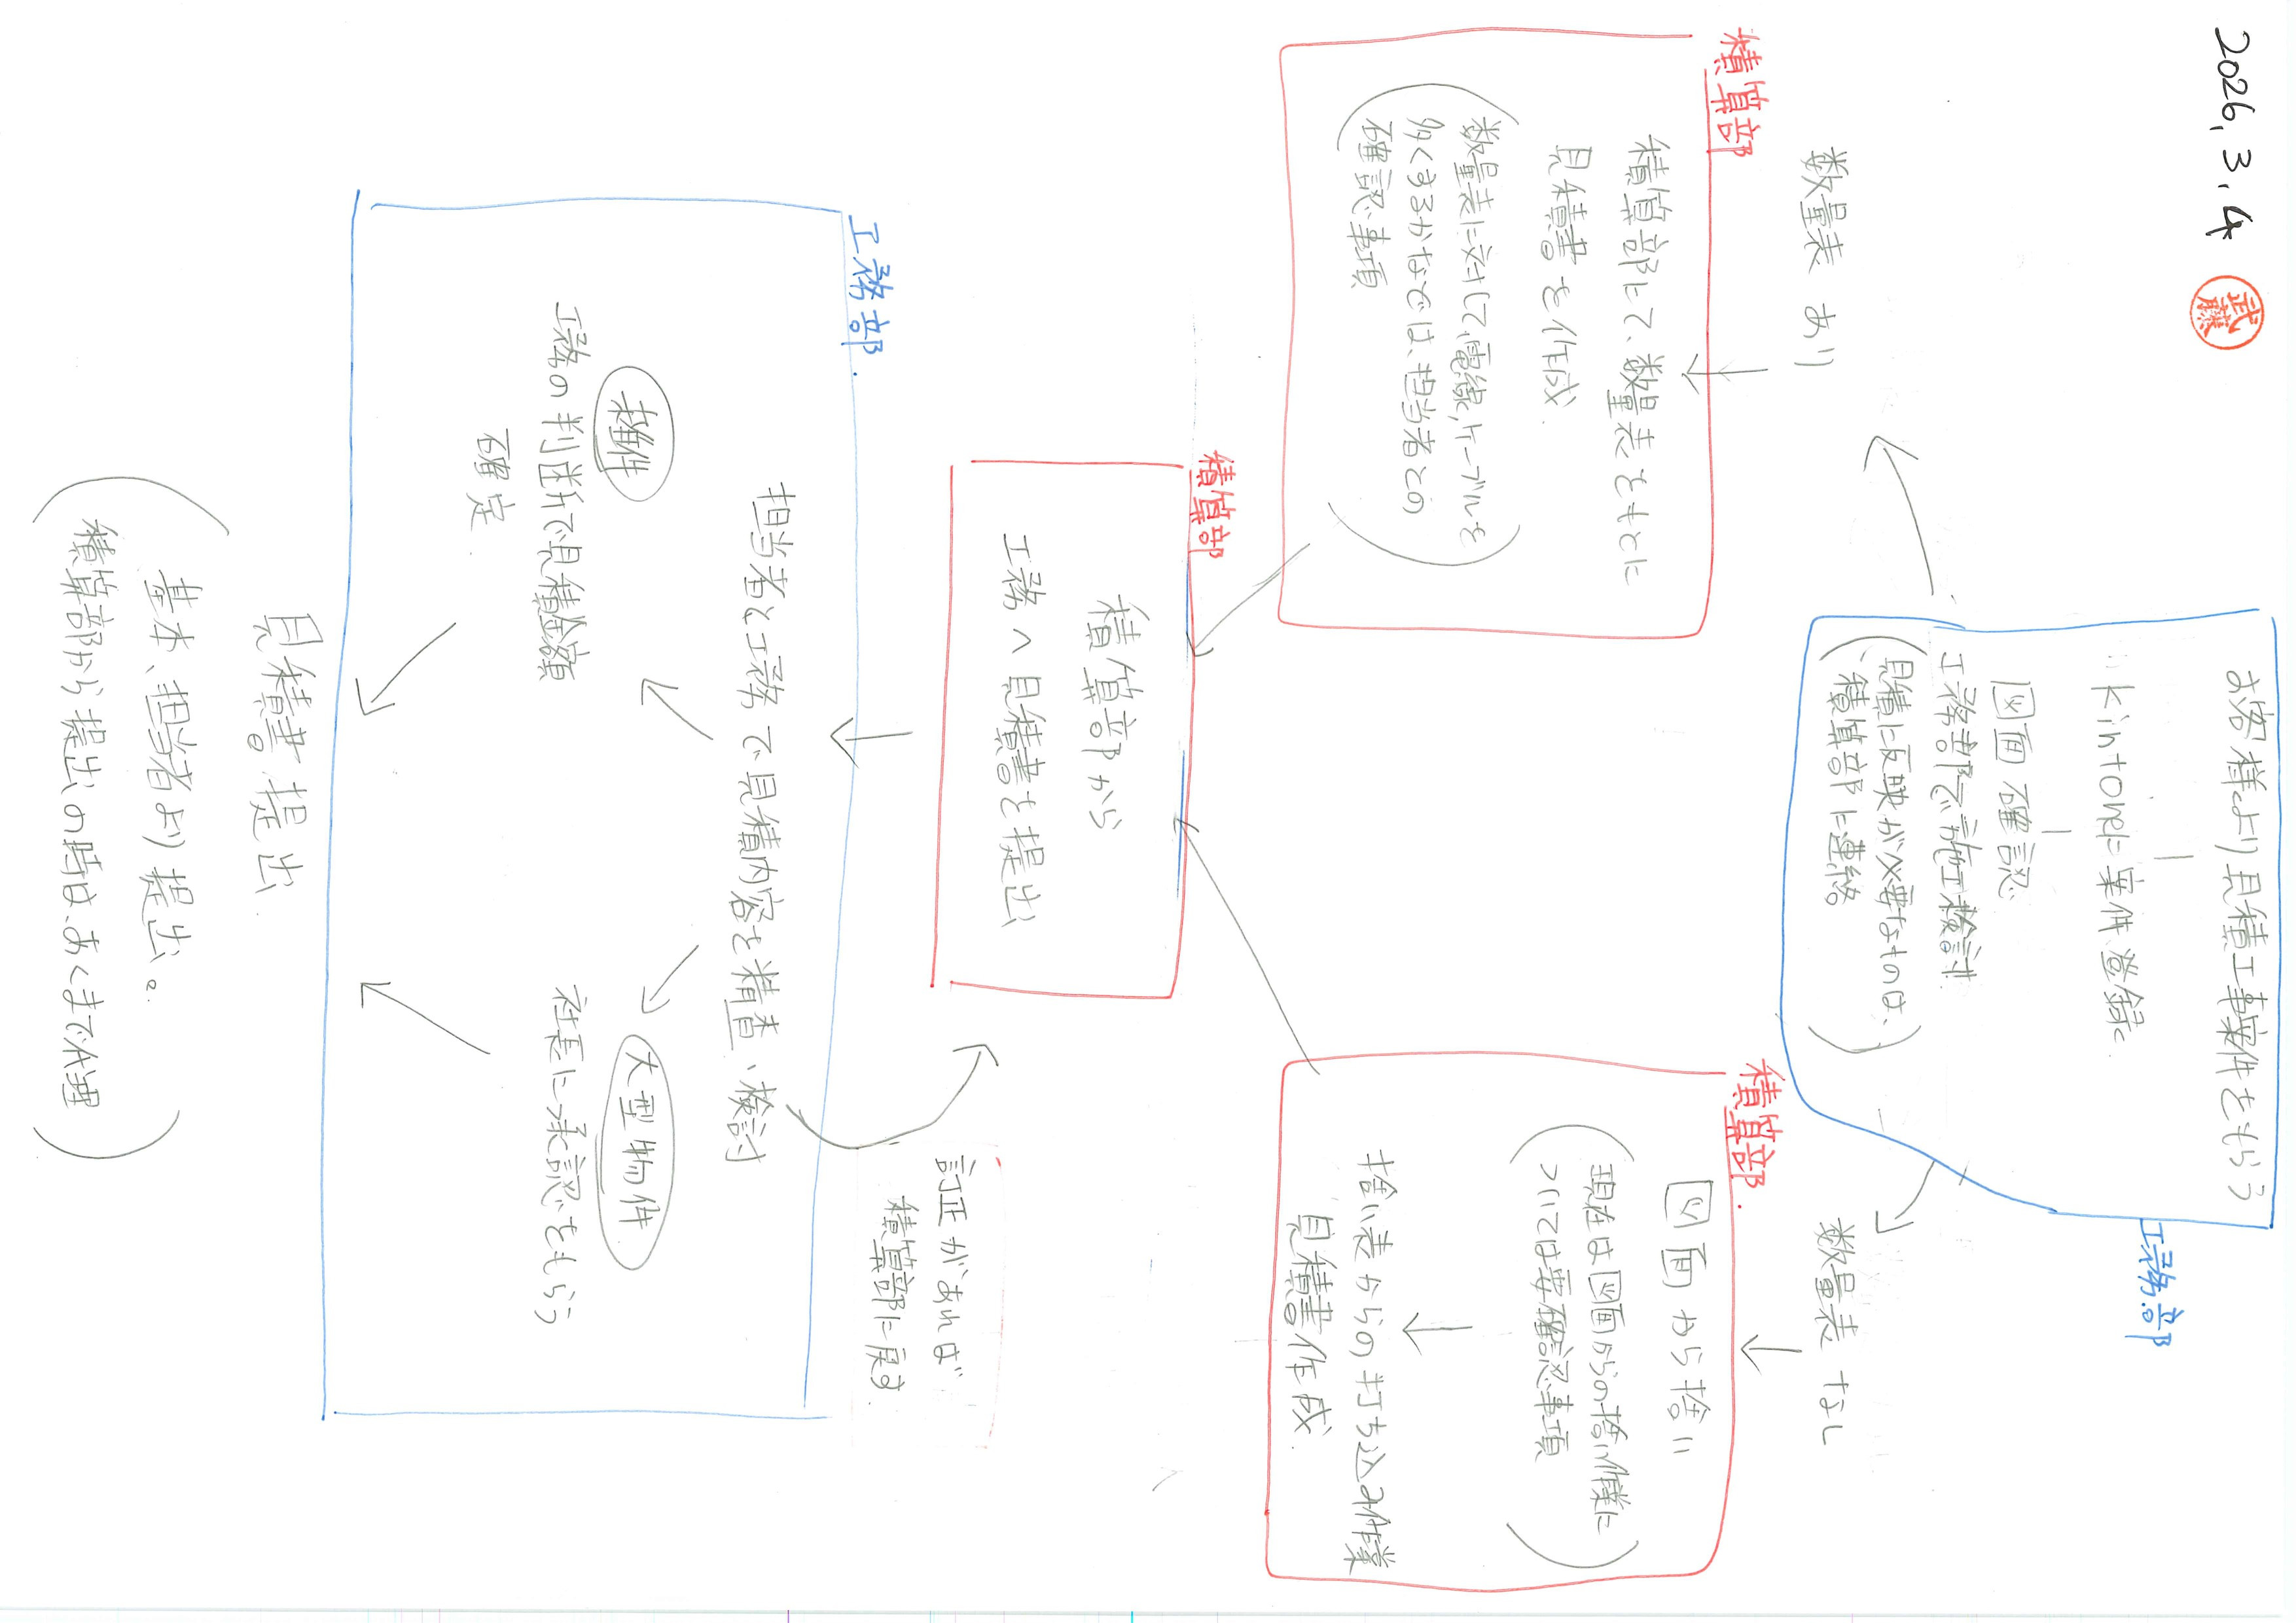 2026.3.4
武藤
お客様より見積工事案件をもらう
工務部
kintoneに案件登録
図面確認
工務部で施工検討
(見積に反映が必要なものは、
積算部に連絡)
数量表 あり
数量表 なし
積算部
積算部にて、数量表をもとに
見積書を作成
(数量表に対して、電線、ケーブルを
多くするかなでは、担当者との
確認事項)
積算部.
図面から拾い
(現在は図面からの拾い作業に
ついては要確認事項)
拾い表からの打ち込み作業
見積書作成
積算部
積算部から
工務へ見積書を提出
訂正があれば
積算部に戻す
工務部.
担当者と工務で見積内容を精査、検討
雑件
工務の判断で見積金額
確定
大型物件
社長に承認をもらう
見積書提出
(基本、担当者より提出。
積算部から提出の時は、あくまで代理)